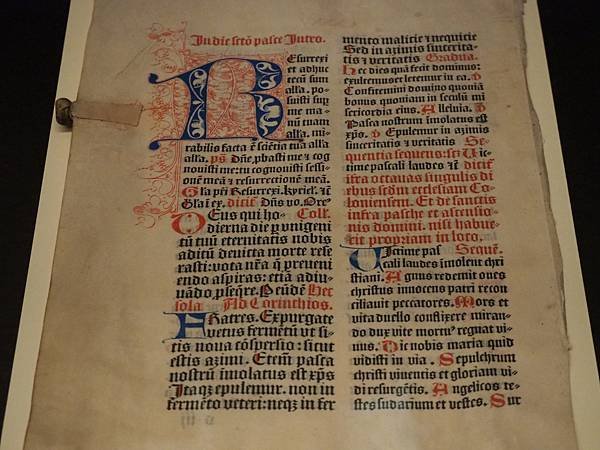 In die scto pasce Intro.
Resurrexi
et adhuc
tecū sum
alla. po-
suisti sup
me ma-
nū tuam
alla. mi-
rabilis facta ē sciētia tua alla
alla. ps Dñe pbasti me z cog
nouisti me: tu cognouisti sessi-
onē meā z resurrectionē meā.
Gla pri Resurrexi. kyriel. z
Gla i ex. dicit Dñs vo. Ore
Deus qui ho- Coll.
dierna die p vnigeni
tū tuū eternitatis nobis
aditū deuicta morte rese
rasti: vota nrā q preueni
endo aspiras: etiā adiu-
uādo pseqre. P eūdē Hec
sola Ad Corinthios.
FRatres. Expurgate
vetus fermētū vt si-
tis noua cōspersio: sicut
estis azimi. Etem pasca
nostrū imolatus est xps
Itaqz epulemur. non in
fermēto veteri: neqz in fer
mento malicie z nequicie
Sed in azimis sincerita-
tis z veritatis Gradua.
Hec dies quā fecit dominus:
exultemus z letemur in ea. v
Confitemini domino quoniā
bonus quoniam in seculū mi
sericordia eius. Alleluia. v
Pasca nostrum imolatus est
xps. v Epulemur in azimis
sinceritatis z veritatis Se-
quentia sequens: sci Vic
time pascali laudes z dicit
infra octauas singulis di
ebus scdm ecclesiam Co-
loniensem. Et de sanctis
infra pasche et ascensio-
nis domini. nisi habue-
rit propriam in loco.
VIctime pas Sequē.
cali laudes īmolent chri
stiani. Agnus redemit oues
christus innocens patri recon
ciliauit peccatores. Mors et
vita duello conflixere miran-
do dux vite mortuꝰ regnat vi-
uus. Dic nobis maria quid
vidisti in via. Sepulchrum
christi viuentis et gloriam vi-
di resurgētis. Angelicos te-
stes sudarium et vestes. Sur